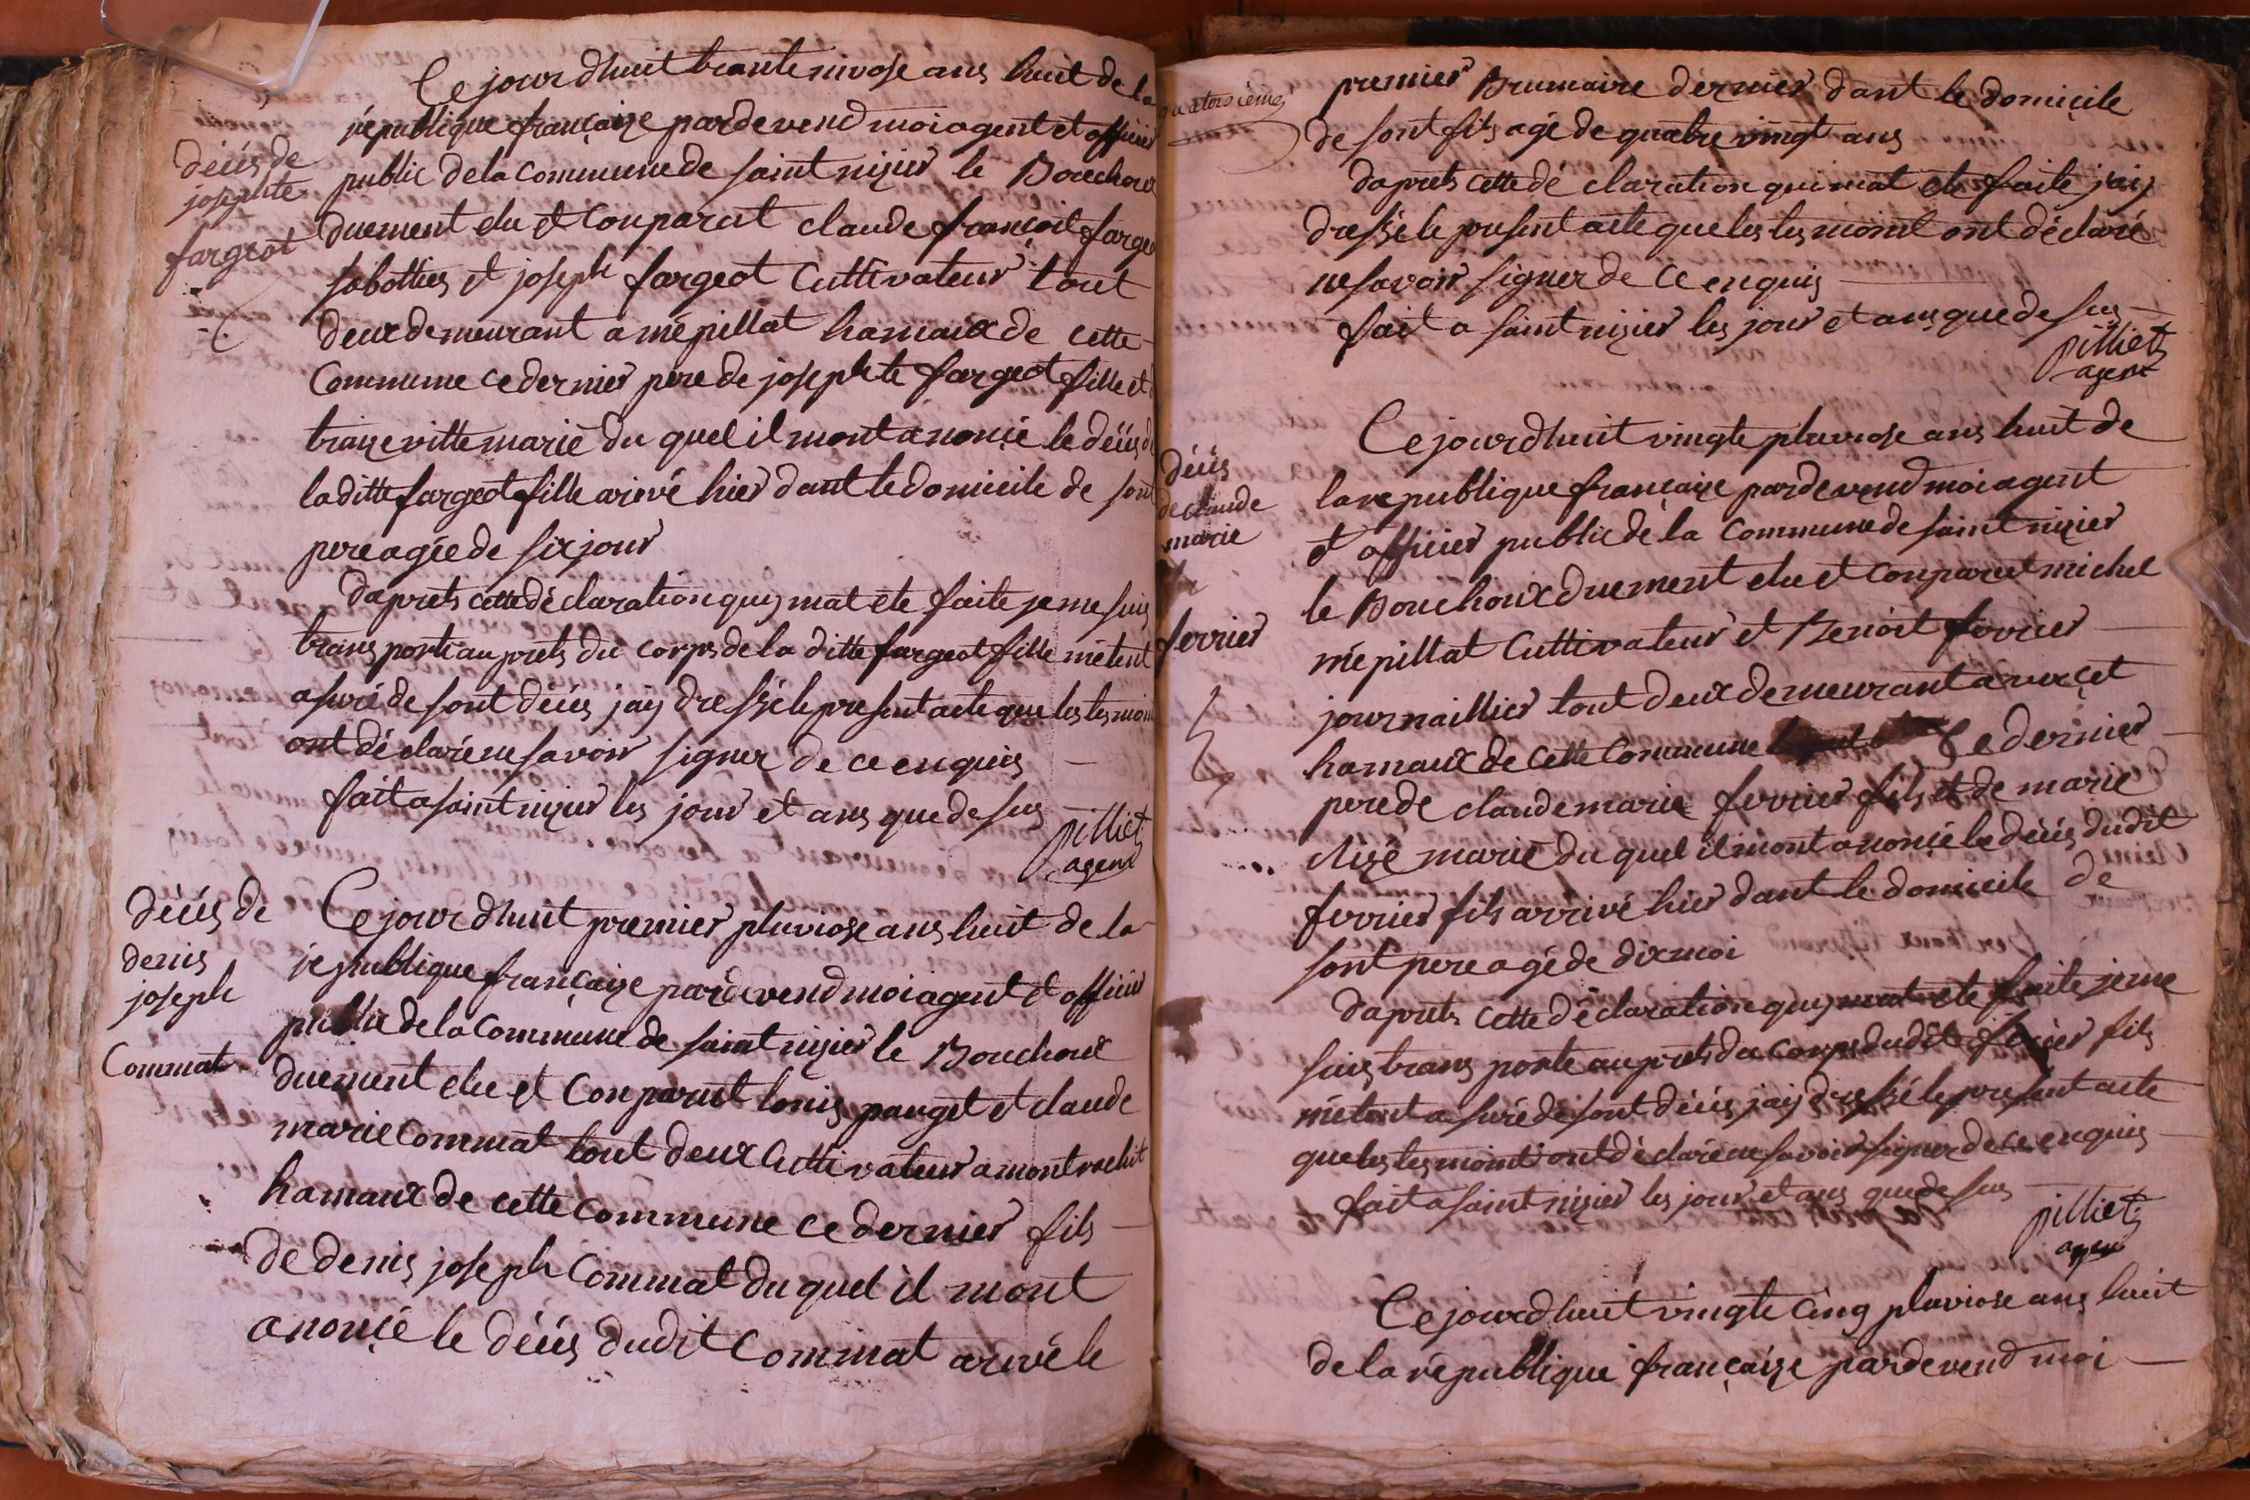 Ce jourdhuit trante nivose ans huit de la
république françaize pardevend moi agent et officier
décés de
josephte
fargeot
public de la commune de saint nizier le Bouchoux
duement elu et Conparut claude françoit fargeot
sabottier et joseph fargeot Cultivateur tout
deux demeurant a mépillat hamaux de cette
Commune ce dernier pere de josephte fargeot fille et de
marié du quel il mont anoncé le décés de
laditte fargeot fille arivé hier dant le domicile de sont
pere agée de six jour
daprets cette déclaration quy mat ete faite je me suis
transporté auprets du corps de la ditte fargeot fille métent
asuré de sont décés jay dressé le present acte que les tesmoint
ont déclaré ne savoir signer de ce enquis
fait a saint nizier les jour et ans que desus
pilliet
agent
décés de
denis
joseph
Commat
Ce jourdhuit premier pluviose ans huit de la
republique françaize pardevend moi agent et officier
public de la Commune de saint nizier le Bouchoux
duement elu et Conparut louis pauget et claude
marie Commat tout deux Cultivateur a
hamaux de cette Commune ce dernier fils
de denis joseph Commat du quel il mont
anoncé le décés dudit Commat arivé le
quatorzième
premier Brumaire dernier dant le domicile
de sont fils agé de quatre vingt ans
daprets cette dé claration qui mat ete faite jaiy
dressé le present acte que les tesmoint ont déclaré
ne savoir signer de ce enquis
fait a saint nizier les jour et ans que desus
pilliet
agent
décés
de claude
marie
ferrier
Ce jourdhuit vingte pluviose ans huit de
la republique françaize pardevend moi agent
et officier public de la Commune de saint nizier
le Bouchoux duement elu et Conparut michel
mépillat Cultivateur et Benoit ferrier
journaillier tout deux demeurant a
hamaux de cette Commune Ce dernier
pere de claude marie ferrier fils et de marie
marié du quel il mont anoncé le décés dudit
ferrier fils arrivé hier dant le domicile de
sont pere agé de dix moi
daprets cette déclaration quy mat ete faite je me
suis transporté auprets du corps dudit ferrier fils
métent asuré de sont décés jay dressé le present acte
que les tesmoint ont déclaré ne savoir signer de ce enquis
fait a saint nizier les jour et ans que desus
pilliet
agent
Ce jourdhuit vingte cinq pluviose ans huit
de la république françaize pardevend moi